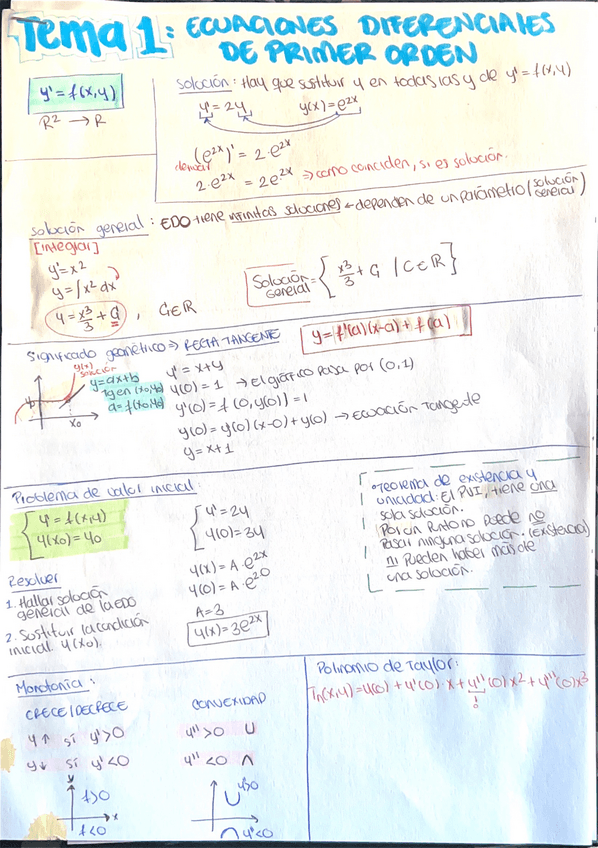 Tema 1: ECUACIONES DIFERENCIALES
DE PRIMER ORDEN
y' = f(x,y)
R² → R
solución: Hay que sustituir y en todas las y de y' = f(x,y)
y' = 2y y(x) = e^2x
(e^2x)' = 2·e^2x
derivar
2·e^2x = 2e^2x ⇒ como coinciden, si es solución.
solución general: EDO tiene infinitas soluciones ← dependen de un parámetro (solución general)
[integrar]
y' = x²
y = ∫x² dx
y = x³/3 + C, C∈R
Solución general = { x³/3 + C / C∈R }
Significado geométrico ⇒ RECTA TANGENTE
y = f'(a)(x-a) + f(a)
y(x) solución
y = ax+b
Tg en (x0,y0)
a = f(x0,y0)
y0
x0
y' = x+y
y(0) = 1 → El gráfico pasa por (0,1)
y'(0) = f(0,y(0)) = 1
y(0) = y'(0)(x-0) + y(0) → Ecuación Tangente
y = x+1
Problema de valor inicial:
{ y' = f(x,y)
y(x0) = y0
Resolver
1. Hallar solución
general de la EDO
2. Sustituir la condición
inicial y(x0).
{ y' = 2y
y(0) = 3y
y(x) = A·e^2x
y(0) = A·e^2·0
A = 3
y(x) = 3e^2x
• Teorema de existencia y
unicidad: El PVI, tiene una
sola solución.
Por un punto no puede no
pasar ninguna solución. (existencia)
ni pueden haber más de
una solución.
Monotonía:
CRECE/DECRECE
y ↑ si y' > 0
y ↓ si y' < 0
y
f > 0
x
f < 0
CONVEXIDAD
y'' > 0 ∪
y'' < 0 ∩
∪ y'' > 0
∩ y'' < 0
Polinomio de Taylor:
Tn(x,y) = y(0) + y'(0)·x + y''(0)x² + y'''(0)x³